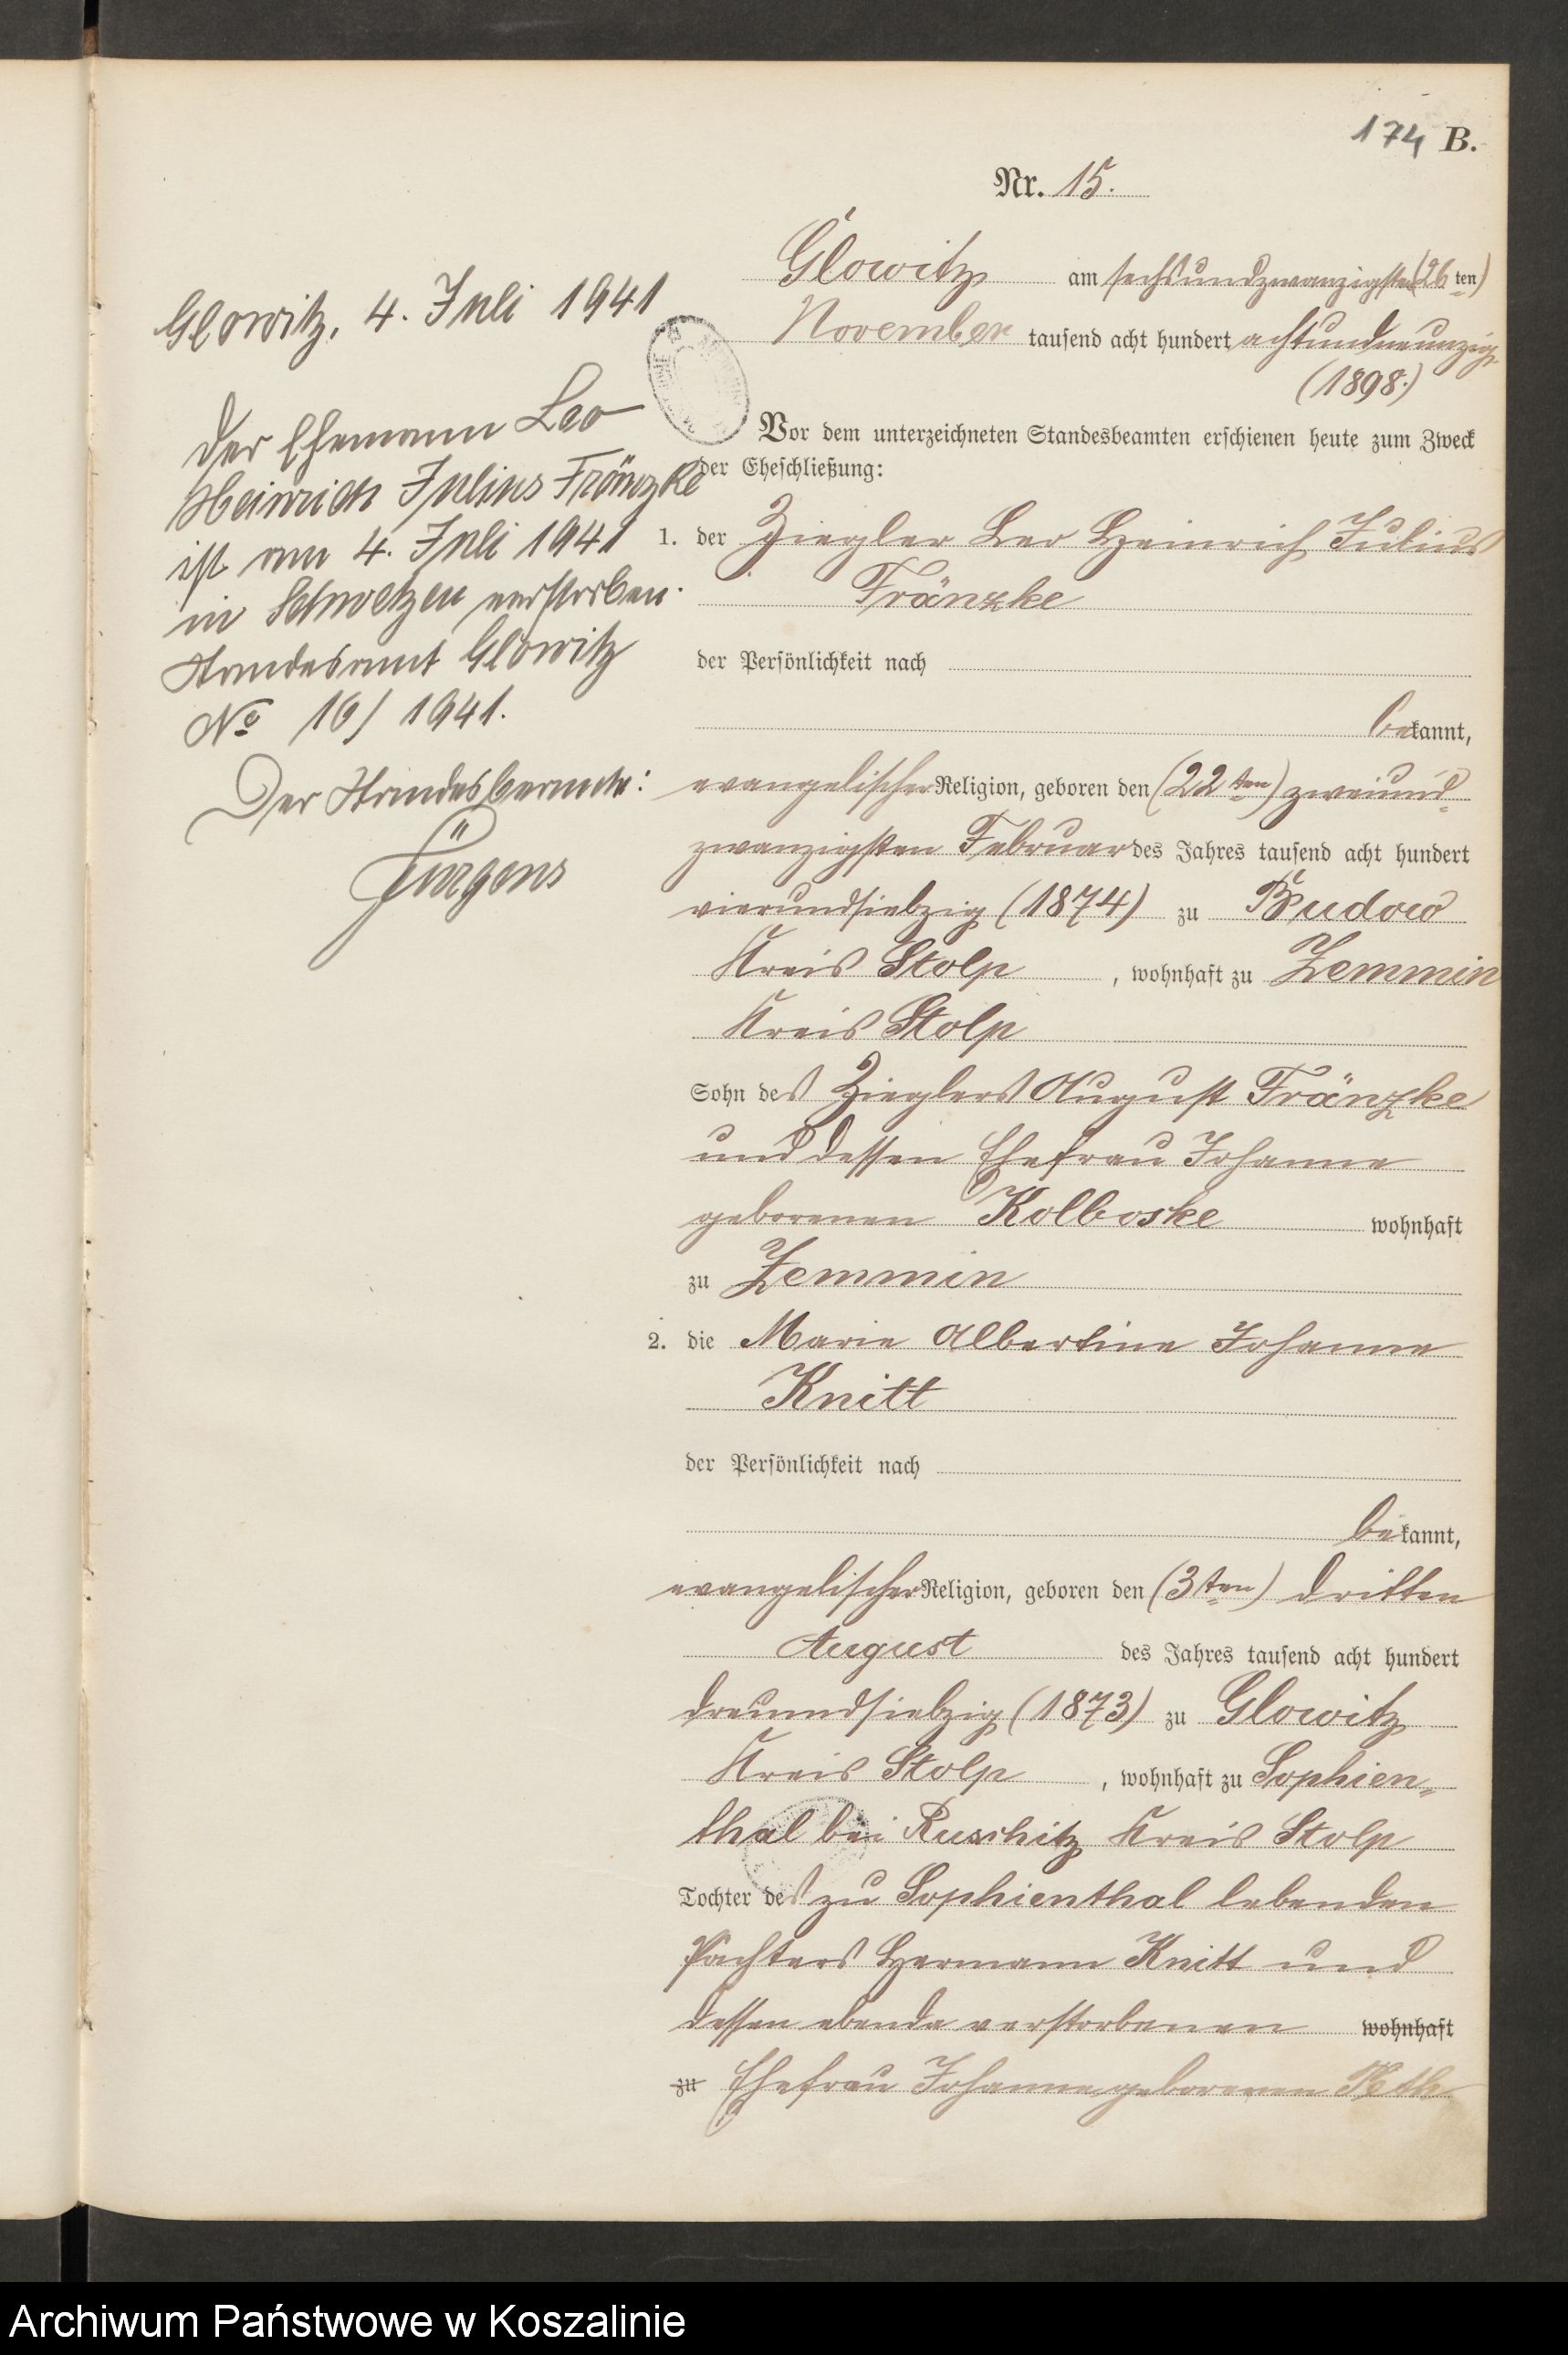 174 B.
Nr. 15.
Glowitz am sechsundzwanzigsten (26 ten)
November tausend acht hundert achtundneunzig
(1898.)
Vor dem unterzeichneten Standesbeamten erschienen heute zum Zweck
der Eheschließung:
1. der Ziegler Leo Heinrich Julius
Fränzke
der Persönlichkeit nach
bekannt,
evangelischer Religion, geboren den (22 ten) zweiund-
zwanzigsten Februar des Jahres tausend acht hundert
vierundsiebzig (1874) zu Budow
Kreis Stolp, wohnhaft zu Zemmin
Kreis Stolp
Sohn des Zieglers August Fränzke
und dessen Ehefrau Johanne
geborenen Kolboske wohnhaft
zu Zemmin
2. die Marie Albertine Johanne
Knitt
der Persönlichkeit nach
bekannt,
evangelischer Religion, geboren den (3 ten) dritten
August des Jahres tausend acht hundert
dreiundsiebzig (1873) zu Glowitz
Kreis Stolp, wohnhaft zu Sophien-
thal bei Ruschitz Kreis Stolp
Tochter des zu Sophienthal lebenden
Pächters Hermann Knitt und
dessen ebenda verstorbenen wohnhaft
zu Ehefrau Johanne geborenen
Glowitz, 4. Juli 1941
Der Ehemann Leo
Heinrich Julius Fränzke
ist am 4. Juli 1941
in Schwetzen verstorben.
Standesamt Glowitz
No 16/1941.
Der Standesbeamte:
Jürgens
Archiwum Państwowe w Koszalinie